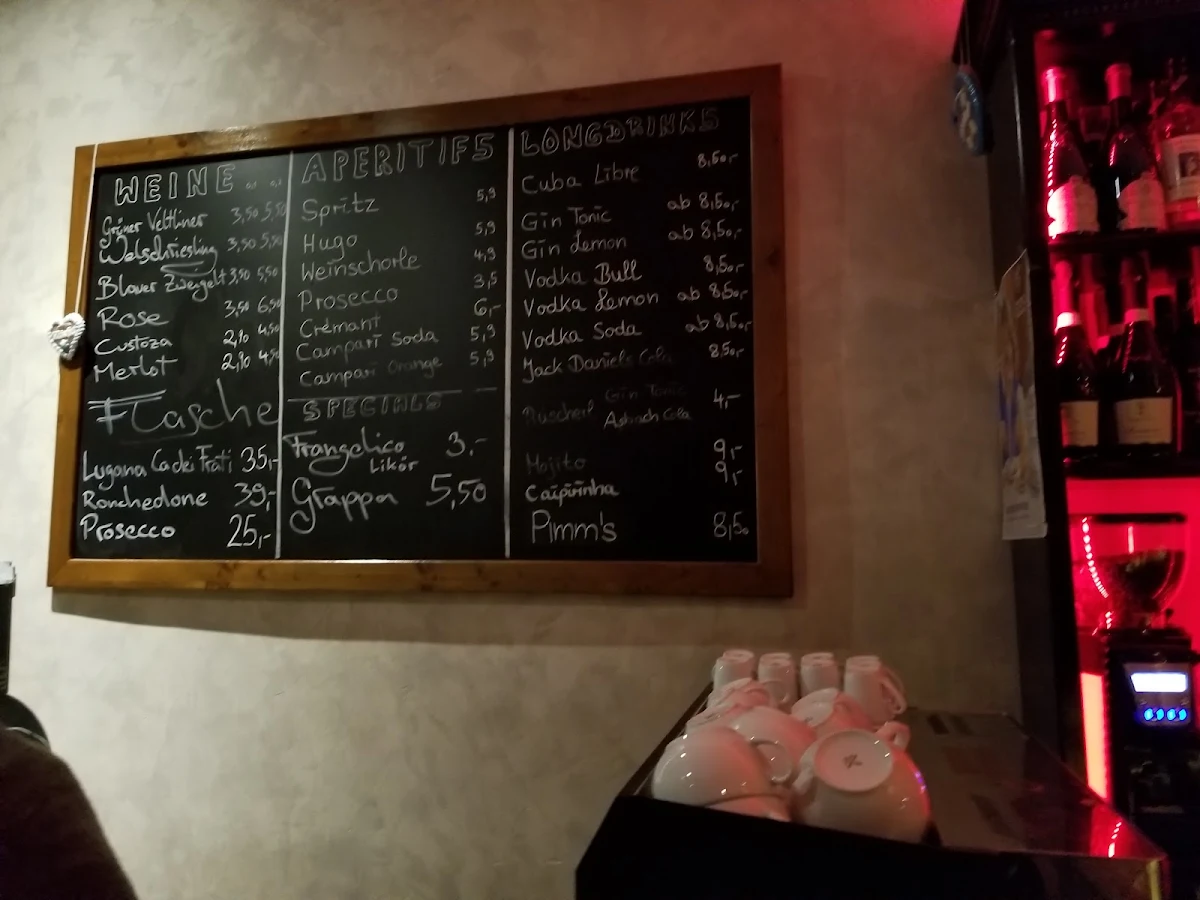 WEINE
Grüner Veltliner 3,50 5,50
Welschriesling 3,50 5,50
Blauer Zweigelt 3,50 5,50
Rose 3,50 6,50
Custoza 2,90 4,50
Merlot 2,90 4,50
Flasche
Lugana Ca dei Frati 35,-
Ronchedone 39,-
Prosecco 25,-
APERITIFS
Spritz 5,9
Hugo 5,9
Weinschorle 4,9
Prosecco 3,5
Crémant 6,-
Campari Soda 5,9
Campari Orange 5,9
SPECIALS
Frangelico 3,-
Likör
Grappa 5,50
LONGDRINKS
Cuba Libre 8,50,-
Gin Tonic ab 8,50,-
Gin Lemon ab 8,50,-
Vodka Bull 8,50,-
Vodka Lemon ab 8,50,-
Vodka Soda ab 8,50,-
Jack Daniels Cola 8,50,-
Gin Tonic
Rüscherl Asbach Cola 4,-
Mojito 9,-
Caipirinha 9,-
Pimm's 8,50